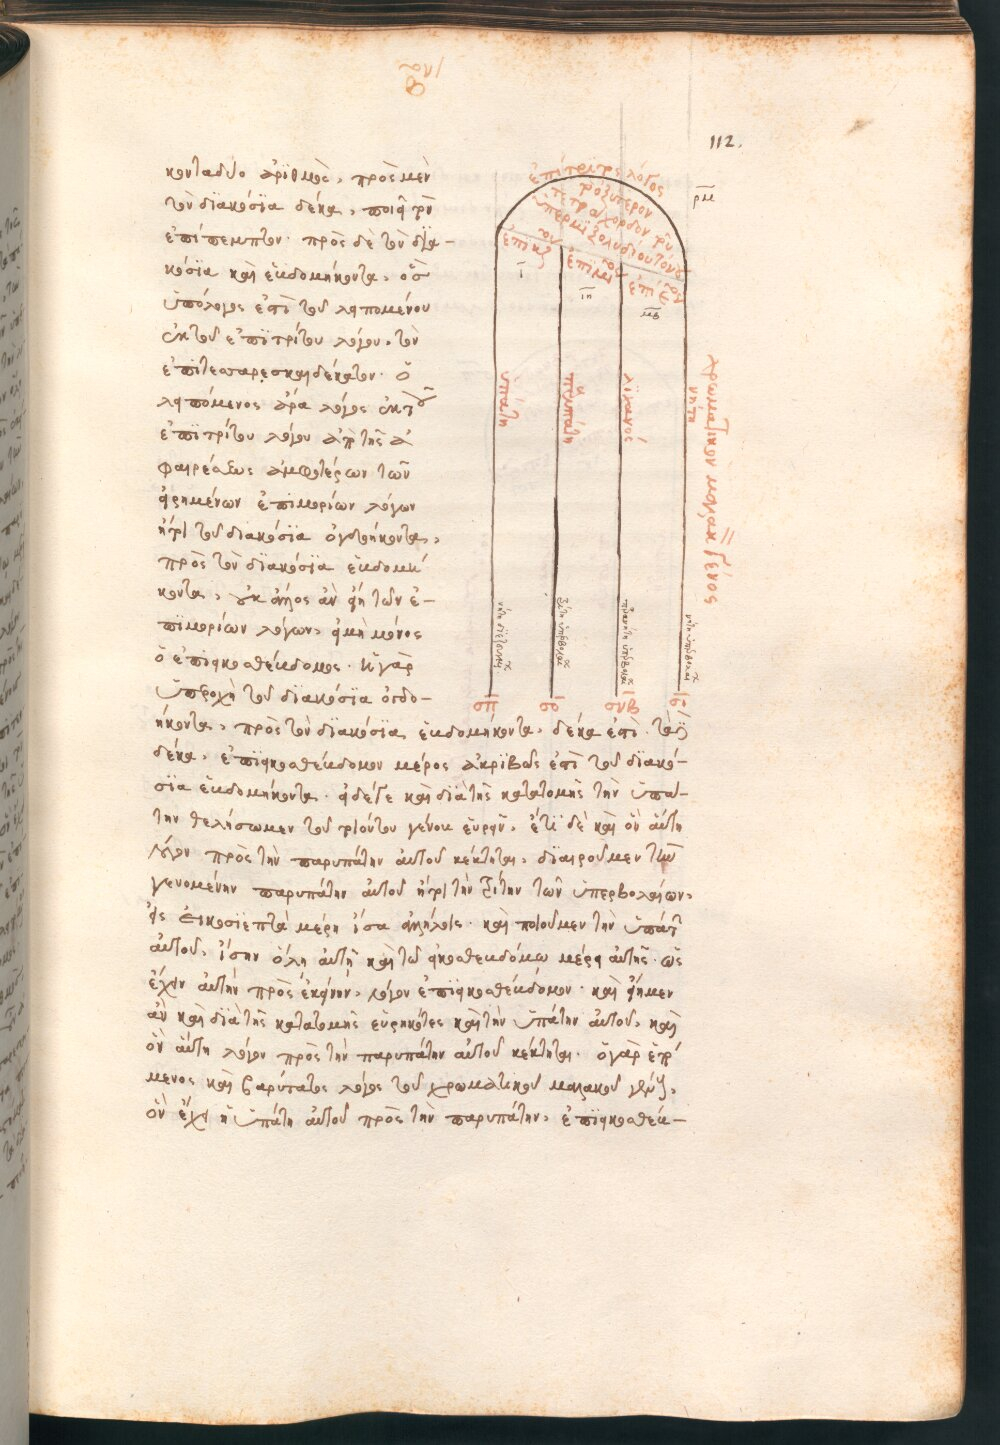 112.
κονταδύο ἀριθμὸς, πρὸς μὲν
τὸν διακόσια δέκα, ποιεῖ τὸν
ἐπίπεμπτον· πρὸς δὲ τὸν δϊα-
κόσϊα καὶ ἑβδομήκοντα,
ὑπόλογος ἐπὶ τοῦ λειπομένου
ἐκ τοῦ ἐπιτρίτου λόγου, τὸν
ἐπιτεσσαρεσκαιδέκατον· ὁ
λειπόμενος ἄρα λόγος ἐκ τοῦ
ἐπιτρίτου λόγου ἀπὸ τῆς ἀ
φαιρέσεως ἀμφοτέρων τῶν
εἰρημένων ἐπιμορίων λόγων
ἤτοι τοῦ διακόσϊα ὀγδοήκοντα,
πρὸς τὸν διακόσϊα ἑβδομή
κοντα, οὐκ ἄλλος ἂν εἴη τῶν ἐ-
πιμορίων λόγων, εἰ μὴ μόνος
ὁ ἐπιεικοσθέβδομος· ἡ γὰρ
ὑπεροχὴ τοῦ διακόσϊα ὀγδο-
ήκοντα, πρὸς τὸν διακόσϊα ἑβδομήκοντα, δέκα ἐστὶ·
δέκα, ἐπιεικοσθέβδομον μέρος ἀκριβῶς ἐστὶ τοῦ διακό-
σϊα ἑβδομήκοντα· εἰ δέ γε καὶ διὰ τῆς κατατομῆς τὴν ὑπά-
την θελήσωμεν τοῦ τοιούτου γένους εὑρεῖν, ἔτι δὲ καὶ ὃν αὕτη
λόγον πρὸς τὴν παρυπάτην αὐτοῦ κέκτηται, διαιροῦμεν τὴν
γενομένην παρυπάτην αὐτοῦ ἤτοι τὴν τρίτην τῶν ὑπερβολαίων,
εἰς εἰκοσιεπτὰ μέρη ἴσα ἀλλήλοις· καὶ ποιοῦμεν τὴν ὑπάτην
αὐτοῦ, ἴσην ὅλῃ αὐτῇ καὶ τῷ εἰκοσθεβδόμῳ μέρει αὐτῆς· ὡς
ἔχειν αὐτὴν πρὸς ἐκείνην, λόγον ἐπιεικοσθέβδομον· καὶ εἴημεν
ἂν καὶ διὰ τῆς κατατομῆς εὑρηκότες καὶ τὴν ὑπάτην αὐτοῦ, καὶ
ὃν αὕτη λόγον πρὸς τὴν παρυπάτην αὐτοῦ κέκτηται· ὁ γὰρ ἑπό
μενος καὶ βαρύτατος λόγος τοῦ χρωματικοῦ μαλακοῦ γένους,
ὃν ἔχει ἡ ὑπάτη αὐτοῦ πρὸς τὴν παρυπάτην, ἐπιεικοσθέβ-
ἐπίτριτος λόγος
τοῦ ὀξυτέρου
τετραχόρδου τοῦ
ὑπερμιξολυδίου τόνου
ρμ
ι
ιη
μβ
ὑπάτη
παρυπάτη
λίχανός
νήτη
χρωματικὸν μαλακὸν γένος
νήτη διεζευγμ
τρίτη ὑπερβολαί
παρανήτη ὑπερβολαί
νήτη ὑπερβολαί
σπ
σο
σνβ
σι